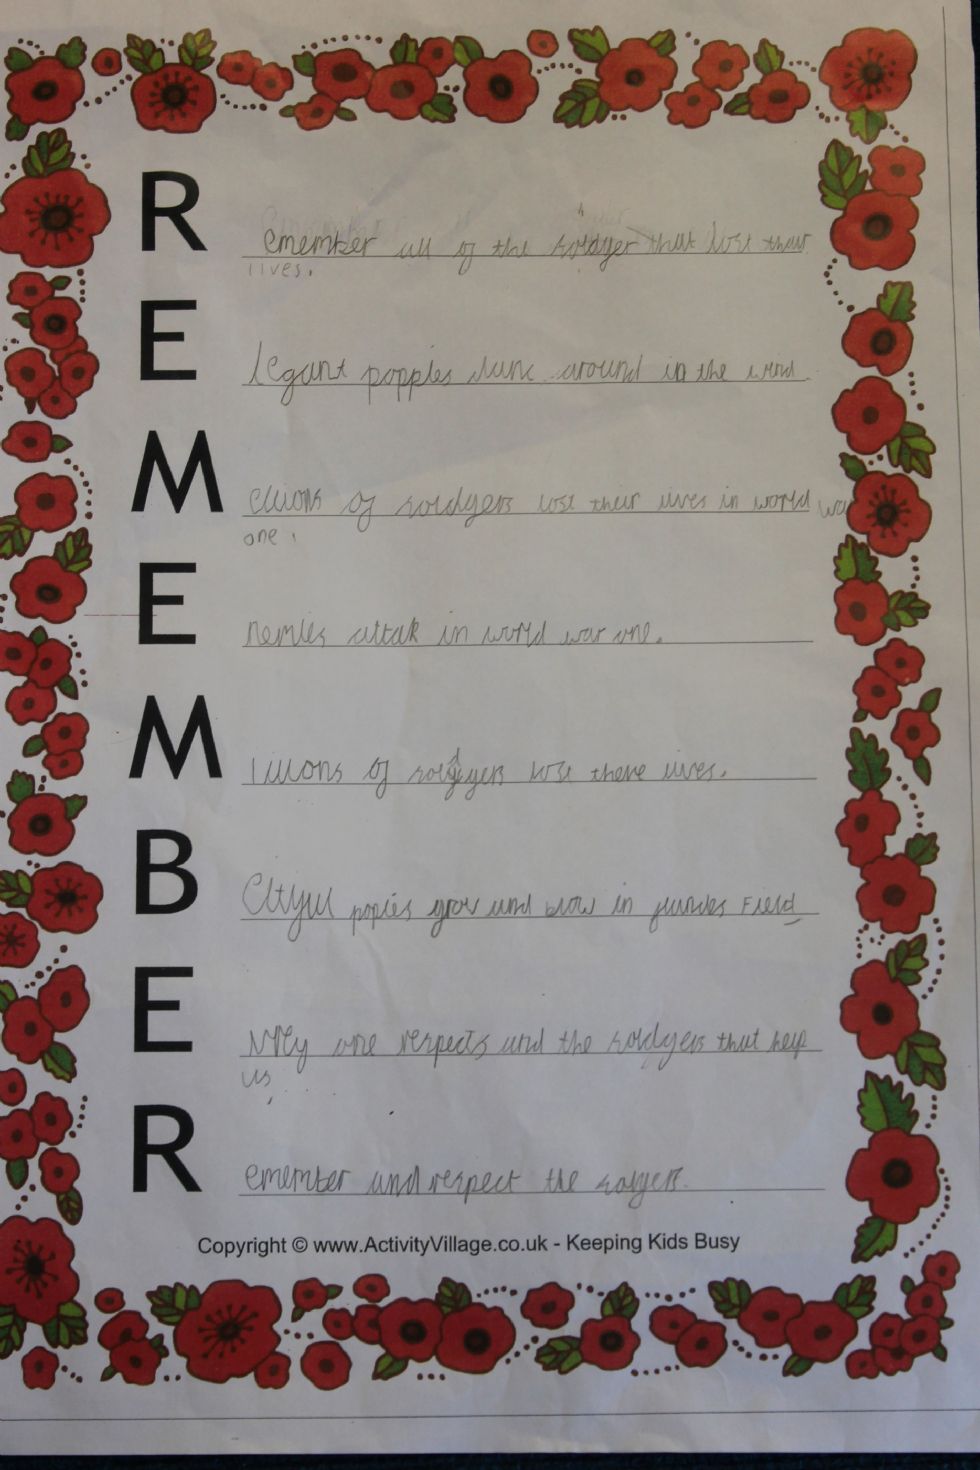 R emember all of the soldyer that lost their
lives.
E legant popples dance around in the wind
M illions of soldyers lost their lives in world war
one.
E nemies attak in world war one.
M illions of soldyers lost there lives.
B popies grow and blow in flandes Field
E one respects and the soldyers that help
us
R emember and respect the solyers.
Copyright © www.ActivityVillage.co.uk - Keeping Kids Busy